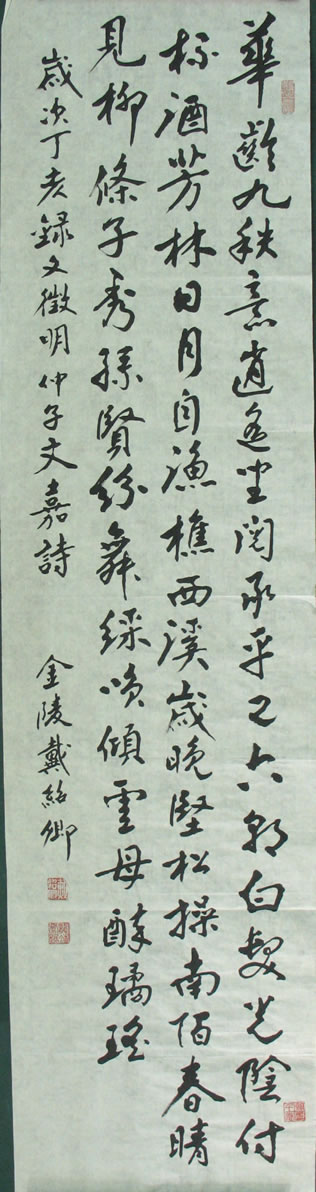 華齡九秩意逍遙坐閱承平已六朝白髮光陰付
杯酒芳林日月自漁樵西溪歲晚堅松操南陌春晴
見柳條子秀孫賢紛舞綵喚傾雲母醉璚瑤
歲次丁亥錄文徵明仲子文嘉詩 金陵戴紹卿